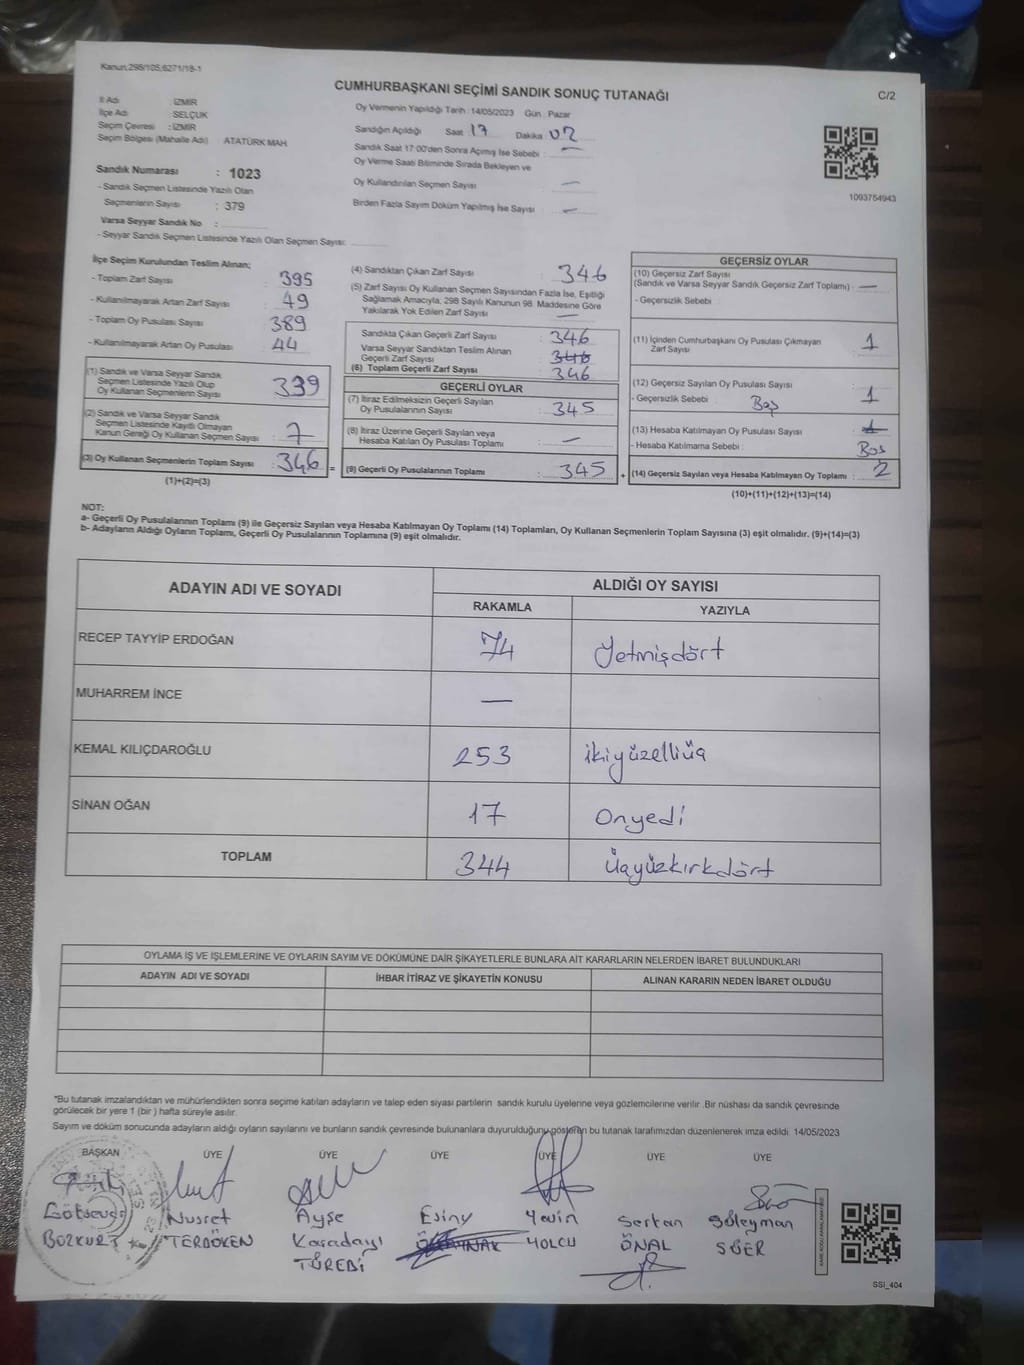 Kanun:298/105,6271/18-1
CUMHURBAŞKANI SEÇİMİ SANDIK SONUÇ TUTANAĞI
C/2
İl Adı : İZMİR
İlçe Adı : SELÇUK
Seçim Çevresi : İZMİR
Seçim Bölgesi (Mahalle Adı) : ATATÜRK MAH.
Oy Vermenin Yapıldığı Tarih : 14/05/2023 Gün : Pazar
Sandığın Açıldığı Saat 17 Dakika 02
Sandık Saat 17:00'den Sonra Açımış İse Sebebi : —
Oy Verme Saati Bitiminde Sırada Bekleyen ve
Oy Kullandırılan Seçmen Sayısı : —
Birden Fazla Sayım Döküm Yapılmış İse Sayısı : —
1093754943
Sandık Numarası : 1023
- Sandık Seçmen Listesinde Yazılı Olan
Seçmenlerin Sayısı : 379
Varsa Seyyar Sandık No :
- Seyyar Sandık Seçmen Listesinde Yazılı Olan Seçmen Sayısı:
İlçe Seçim Kurulundan Teslim Alınan;
- Toplam Zarf Sayısı : 395
- Kullanılmayarak Artan Zarf Sayısı : 49
- Toplam Oy Pusulası Sayısı : 389
- Kullanılmayarak Artan Oy Pusulası : 44
(1) Sandık ve Varsa Seyyar Sandık
Seçmen Listesinde Yazılı Olup
Oy Kullanan Seçmenlerin Sayısı : 339
(2) Sandık ve Varsa Seyyar Sandık
Seçmen Listesinde Kayıtlı Olmayan
Kanun Gereği Oy Kullanan Seçmen Sayısı : 7
(3) Oy Kullanan Seçmenlerin Toplam Sayısı : 346 =
(1)+(2)=(3)
(4) Sandıktan Çıkan Zarf Sayısı : 346
(5) Zarf Sayısı Oy Kullanan Seçmen Sayısından Fazla İse, Eşitliği
Sağlamak Amacıyla; 298 Sayılı Kanunun 98. Maddesine Göre
Yakılarak Yok Edilen Zarf Sayısı : —
Sandıkta Çıkan Geçerli Zarf Sayısı : 346
Varsa Seyyar Sandıktan Teslim Alınan
Geçerli Zarf Sayısı : 346
(6) Toplam Geçerli Zarf Sayısı : 346
GEÇERLİ OYLAR
(7) İtiraz Edilmeksizin Geçerli Sayılan
Oy Pusulalarının Sayısı : 345
(8) İtiraz Üzerine Geçerli Sayılan veya
Hesaba Katılan Oy Pusulası Toplamı : —
(9) Geçerli Oy Pusulalarının Toplamı : 345 +
GEÇERSİZ OYLAR
(10) Geçersiz Zarf Sayısı
(Sandık ve Varsa Seyyar Sandık Geçersiz Zarf Toplamı) : —
- Geçersizlik Sebebi :
(11) İçinden Cumhurbaşkanı Oy Pusulası Çıkmayan
Zarf Sayısı : 1
(12) Geçersiz Sayılan Oy Pusulası Sayısı : 1
- Geçersizlik Sebebi : Boş
(13) Hesaba Katılmayan Oy Pusulası Sayısı : 1
- Hesaba Katılmama Sebebi : Boş
(14) Geçersiz Sayılan veya Hesaba Katılmayan Oy Toplamı : 2
(10)+(11)+(12)+(13)=(14)
NOT:
a- Geçerli Oy Pusulalarının Toplamı (9) ile Geçersiz Sayılan veya Hesaba Katılmayan Oy Toplamı (14) Toplamları, Oy Kullanan Seçmenlerin Toplam Sayısına (3) eşit olmalıdır. (9)+(14)=(3)
b- Adayların Aldığı Oyların Toplamı, Geçerli Oy Pusulalarının Toplamına (9) eşit olmalıdır.
ADAYIN ADI VE SOYADI
ALDIĞI OY SAYISI
RAKAMLA YAZIYLA
RECEP TAYYİP ERDOĞAN 74 Yetmişdört
MUHARREM İNCE —
KEMAL KILIÇDAROĞLU 253 ikiyüzelliüç
SİNAN OĞAN 17 Onyedi
TOPLAM 344 Üçyüzkırkdört
OYLAMA İŞ VE İŞLEMLERİNE VE OYLARIN SAYIM VE DÖKÜMÜNE DAİR ŞİKAYETLERLE BUNLARA AİT KARARLARIN NELERDEN İBARET BULUNDUKLARI
ADAYIN ADI VE SOYADI İHBAR İTİRAZ VE ŞİKAYETİN KONUSU ALINAN KARARIN NEDEN İBARET OLDUĞU
*Bu tutanak imzalandıktan ve mühürlendikten sonra seçime katılan adayların ve talep eden siyasi partilerin sandık kurulu üyelerine veya gözlemcilerine verilir .Bir nüshası da sandık çevresinde
görülecek bir yere 1 (bir ) hafta süreyle asılır.
Sayım ve döküm sonucunda adayların aldığı oyların sayılarını ve bunların sandık çevresinde bulunanlara duyurulduğunu gösteren bu tutanak tarafımızdan düzenlenerek imza edildi 14/05/2023
BAŞKAN ÜYE ÜYE ÜYE ÜYE ÜYE ÜYE
BOZKURT
Nusret
TERDÖKEN
Ayşe
Karadayı
TÜREDİ
YOLCU
Serkan
ÖNAL
Süleyman
SSİ_404